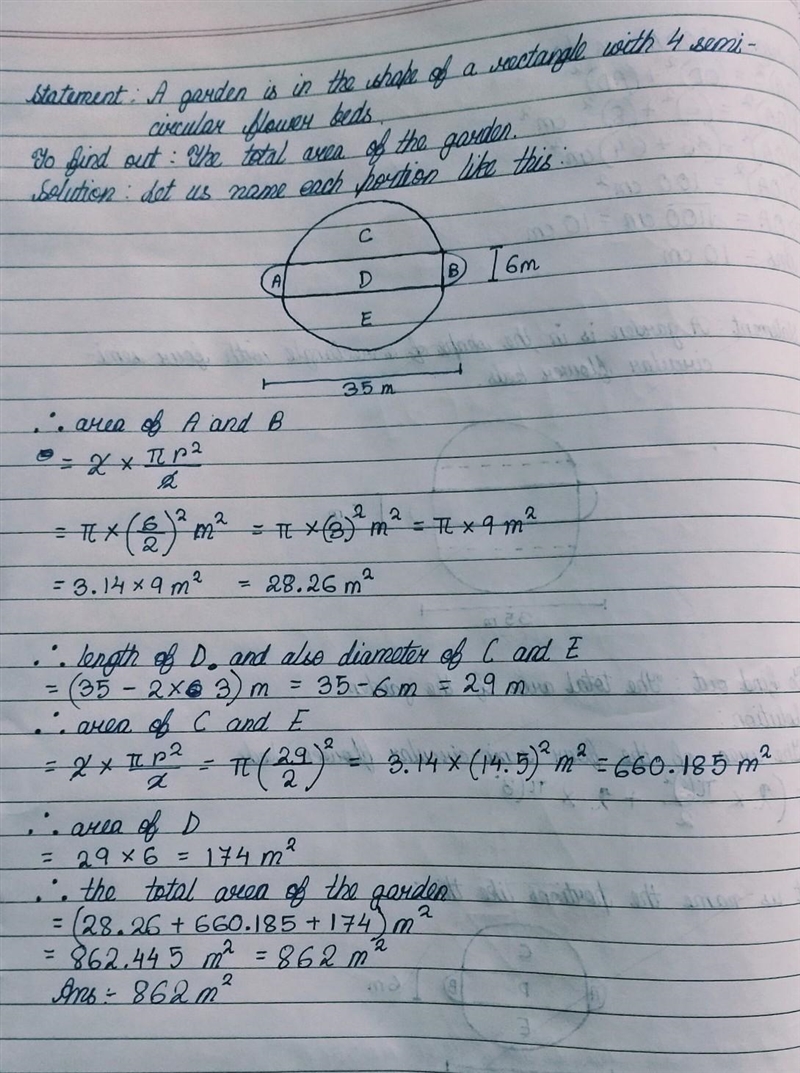 Statement: A garden is in the shape of a rectangle with 4 semi-
circular flower beds.
To find out: The total area of the garden.
Solution: Let us name each portion like this:
C
A D B 6m
E
35 m
∴ area of A and B
= 2 × πr²/2
= π × (6/2)² m² = π × (3)² m² = π × 9 m²
= 3.14 × 9 m² = 28.26 m²
∴ length of D and also diameter of C and E
= (35 - 2×3) m = 35 - 6 m = 29 m
∴ area of C and E
= 2 × πr²/2 = π(29/2)² = 3.14 × (14.5)² m² = 660.185 m²
∴ area of D
= 29 × 6 = 174 m²
∴ the total area of the garden
= (28.26 + 660.185 + 174) m²
= 862.445 m² = 862 m²
Ans :- 862 m²